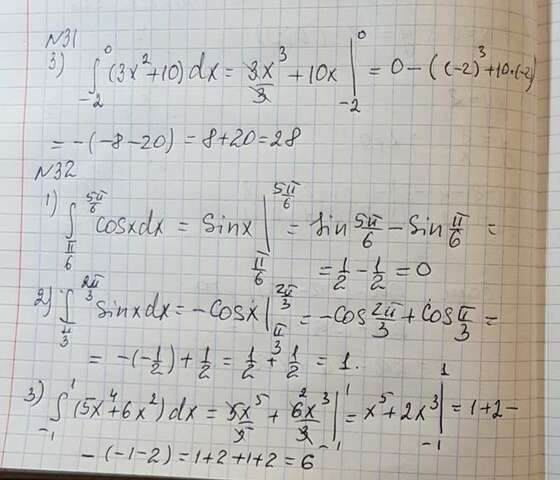 N31
3) ∫₋₂⁰ (3x²+10)dx = 3x³/3 + 10x |₋₂⁰ = 0 − ((-2)³+10·(-2)
= -(-8-20) = 8+20 = 28
N32
1) ∫_{π/6}^{5π/6} cosxdx = sinx |_{π/6}^{5π/6} = sin 5π/6 − sin π/6 =
= 1/2 − 1/2 = 0
2) ∫_{π/3}^{2π/3} sinxdx = -cosx |_{π/3}^{2π/3} = -cos 2π/3 + cos π/3 =
= -(-1/2) + 1/2 = 1/2 + 1/2 = 1.
3) ∫₋₁¹ (5x⁴+6x²)dx = 5x⁵/5 + 6x³/3 |₋₁¹ = x⁵+2x³ |₋₁¹ = 1+2−
− (-1-2) = 1+2+1+2 = 6